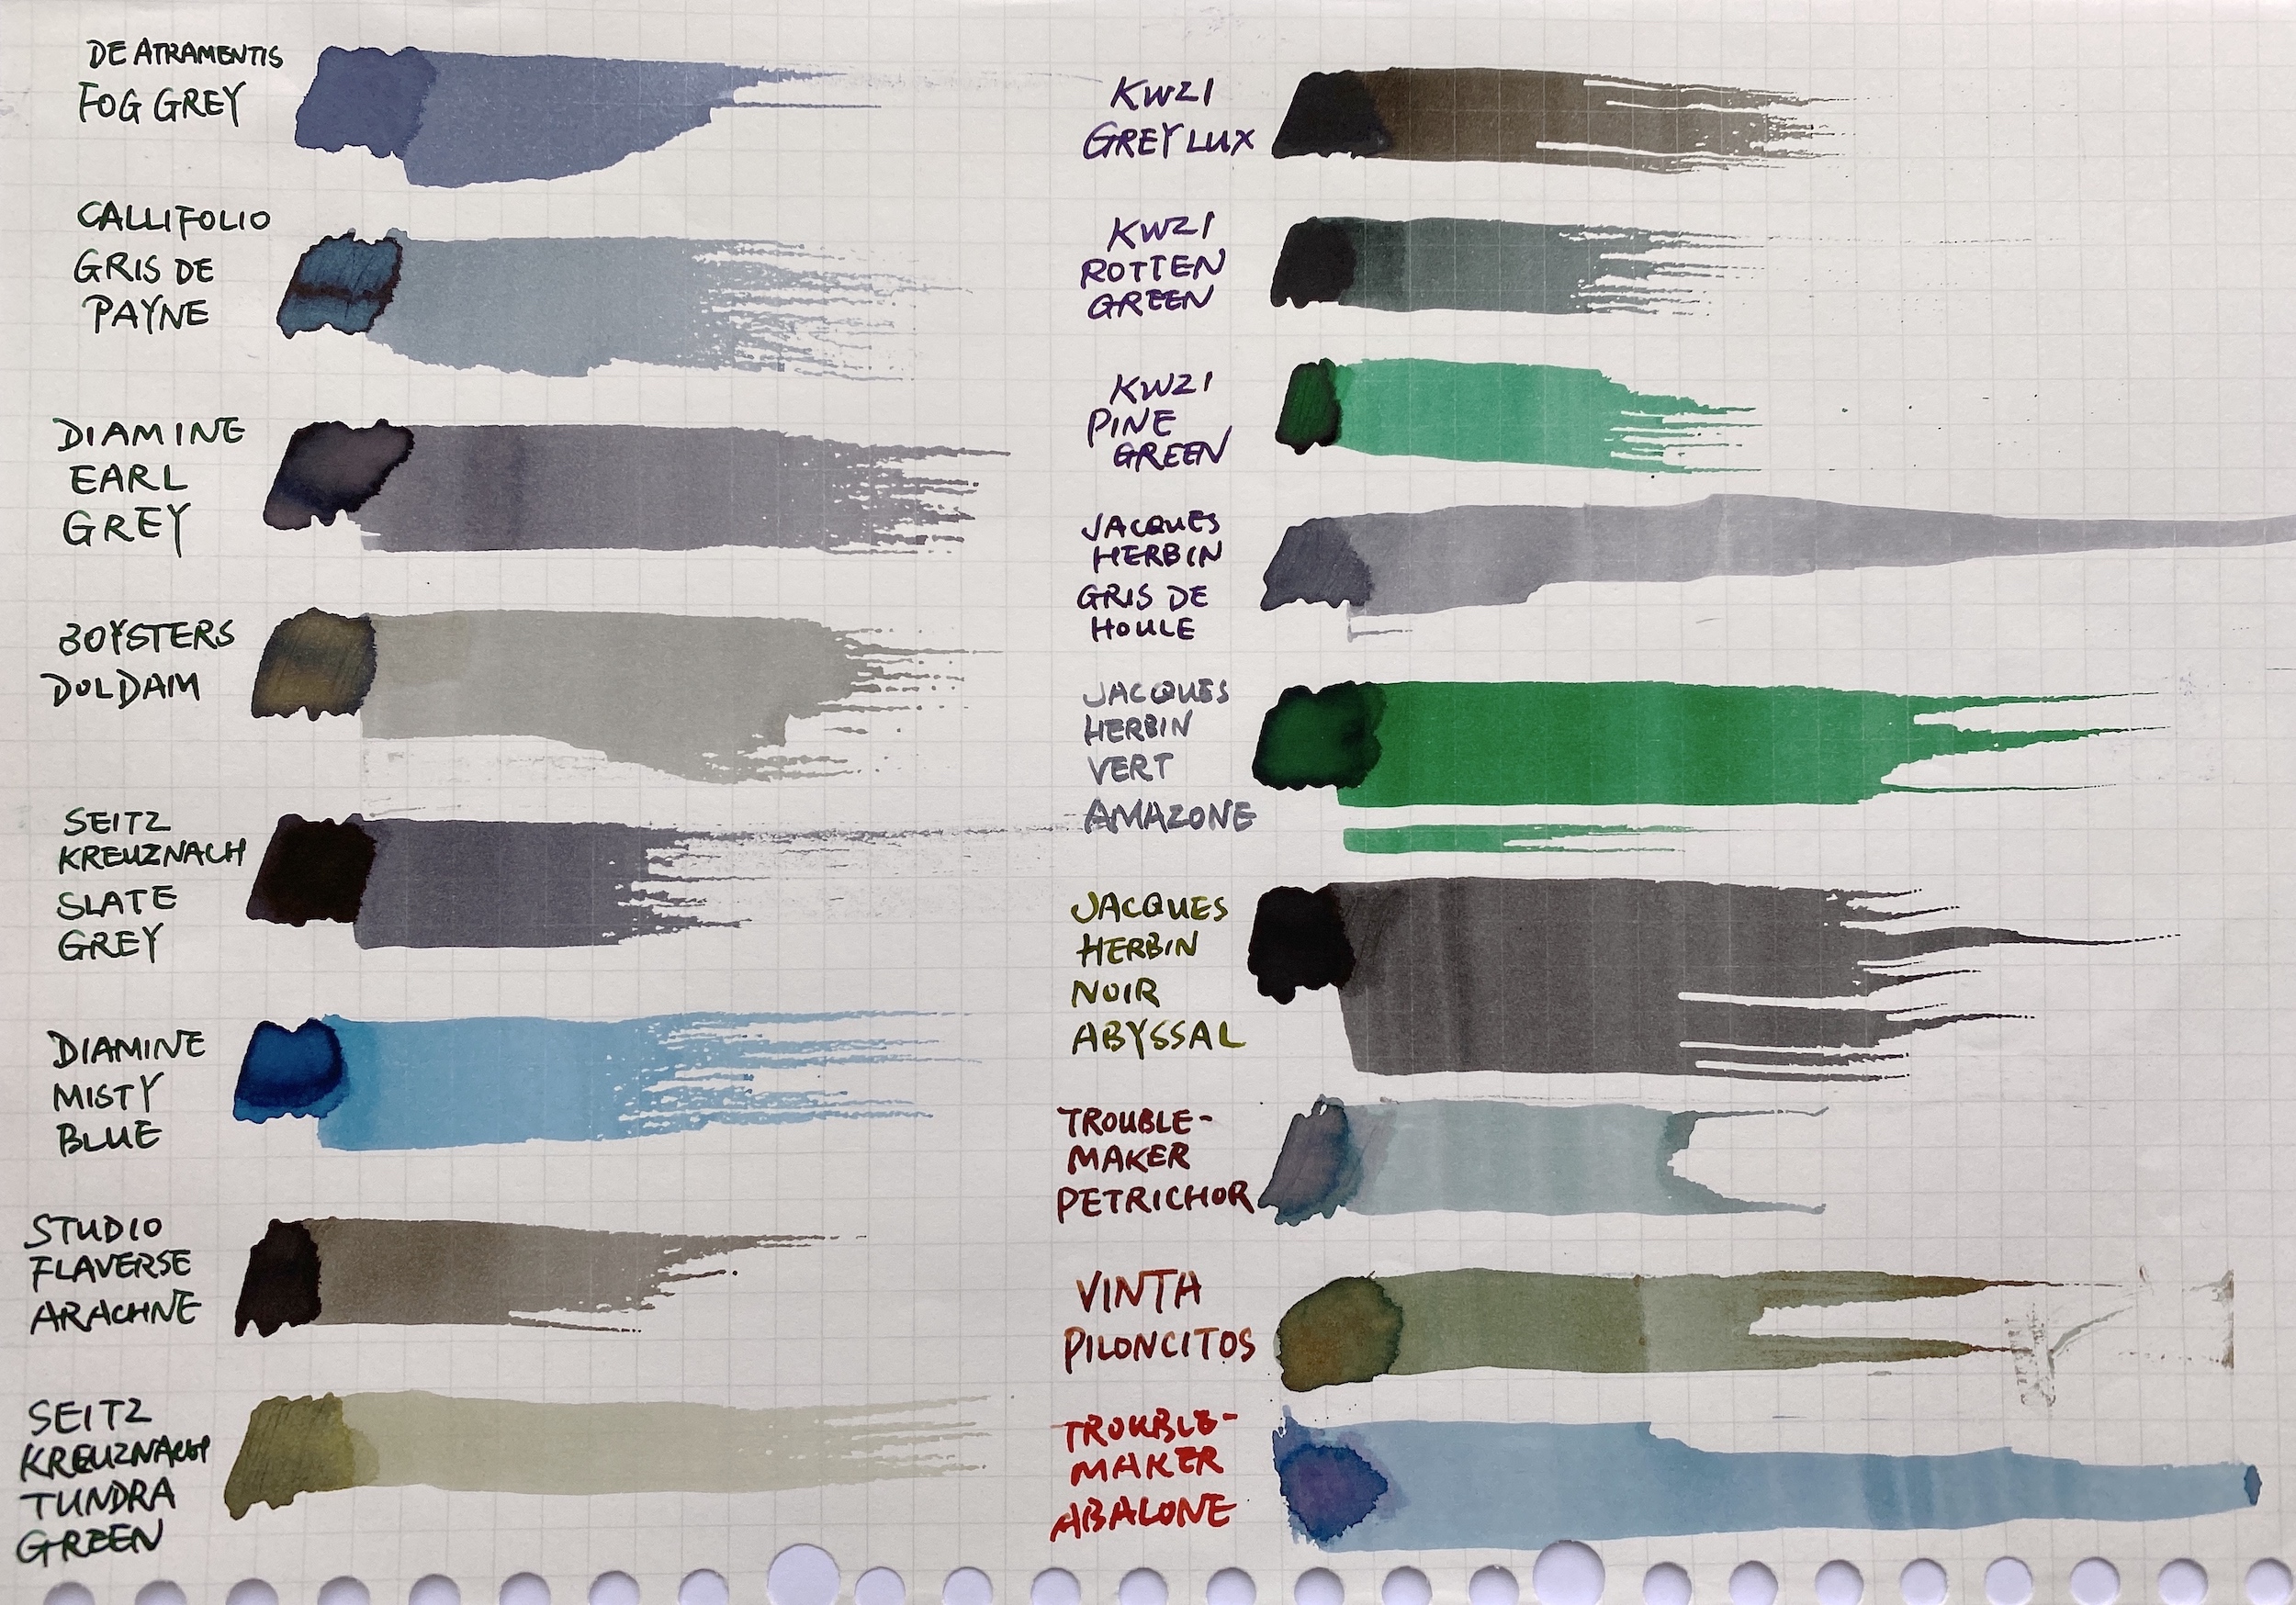 DE ATRAMENTIS
FOG GREY
CALLIFOLIO
GRIS DE
PAYNE
DIAMINE
EARL
GREY
3OYSTERS
DOLDAM
SEITZ
KREUZNACH
SLATE
GREY
DIAMINE
MISTY
BLUE
STUDIO
FLAVERSE
ARACHNE
SEITZ
KREUZNACH
TUNDRA
GREEN
KWZI
GREY LUX
KWZI
ROTTEN
GREEN
KWZI
PINE
GREEN
JACQUES
HERBIN
GRIS DE
HOULE
JACQUES
HERBIN
VERT
AMAZONE
JACQUES
HERBIN
NOIR
ABYSSAL
TROUBLE-
MAKER
PETRICHOR
VINTA
PILONCITOS
TROUBLE-
MAKER
ABALONE